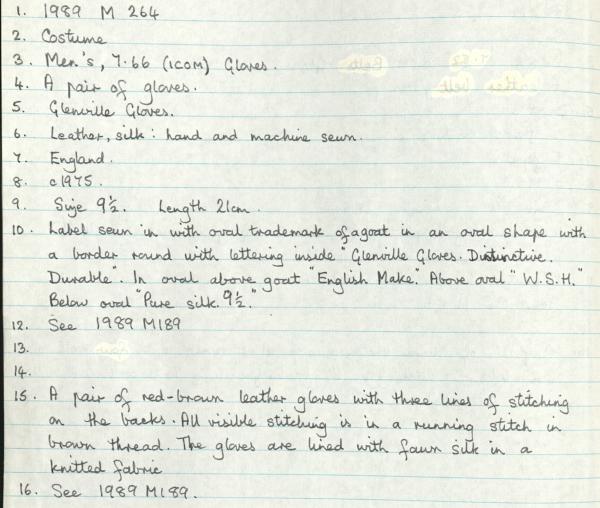 1. 1989 M 264
2. Costume
3. Men's, 7.66 (ICOM) Gloves.
4. A pair of gloves.
5. Glenville Gloves.
6. Leather, silk: hand and machine sewn.
7. England.
8. c1975.
9. Size 9½. Length 21cm.
10. Label sewn in with oval trademark of a goat in an oval shape with
a border round with lettering inside "Glenville Gloves. Distinctive.
Durable". In oval above goat "English Make." Above oval "W.S.H."
Below oval "Pure silk. 9½."
12. See 1989 M189
13.
14.
15. A pair of red-brown leather gloves with three lines of stitching
on the backs. All visible stitching is in a running stitch in
brown thread. The gloves are lined with fawn silk in a
knitted fabric
16. See 1989 M189.